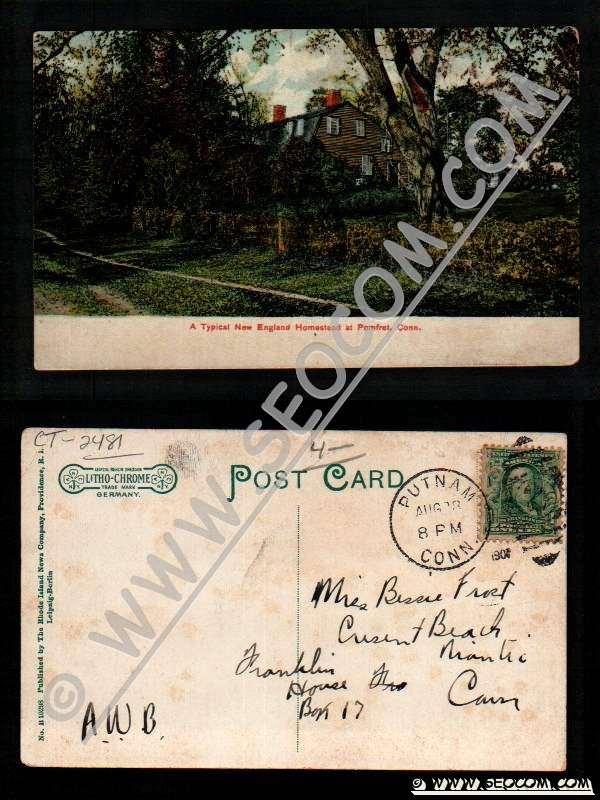 A Typical New England Homestead at Pomfret, Conn.
© WWW.SEOCOM.COM
CT-2481
4-
LITHO-CHROME
TRADE MARK
GERMANY.
POST CARD
PUTNAM
AUG 28
8 PM
CONN.
190
No. B 10298 Published by The Rhode Island News Company, Providence, R. I.
Leipzig-Berlin
Miss Bessie Frost
Cresent Beach
Niantic
Conn
Franklin
House
Box 17
A.W.B.
© WWW.SEOCOM.COM